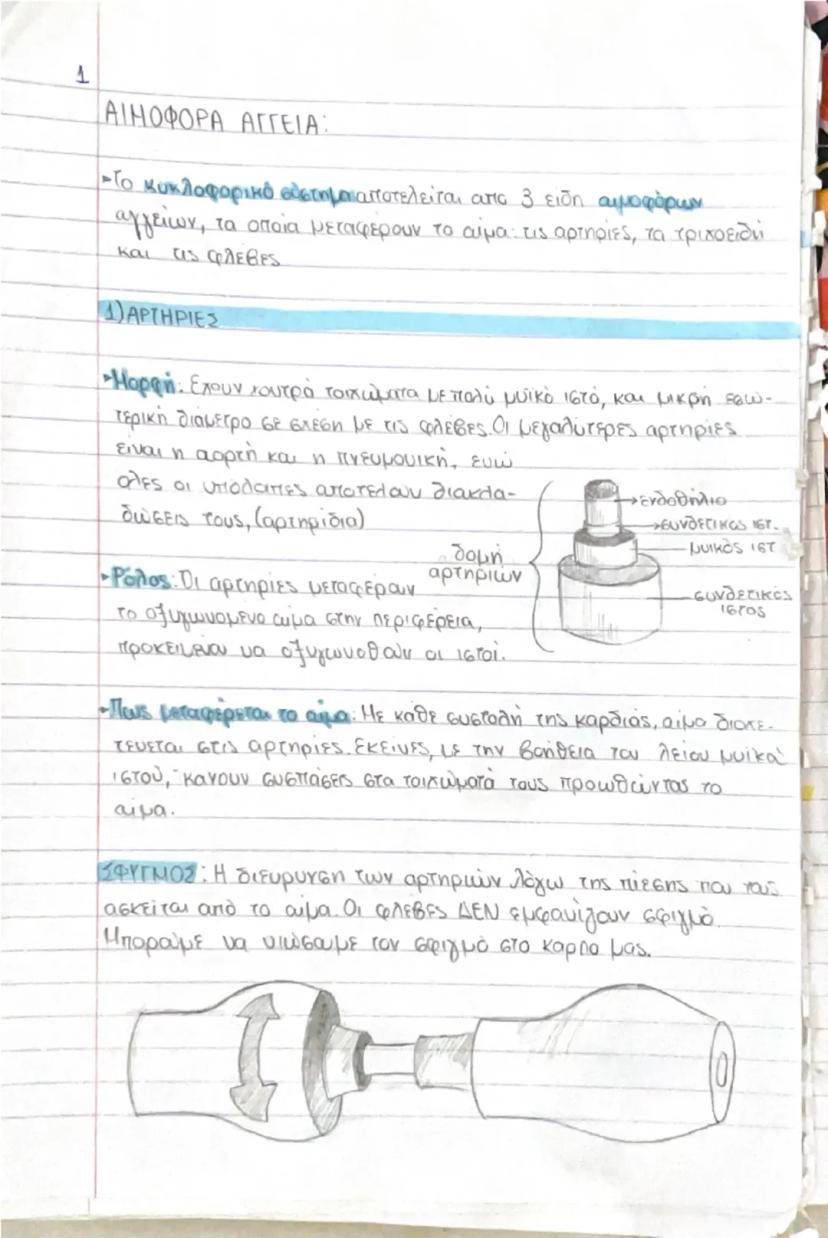 1
ΑΙΜΟΦΟΡΑ ΑΓΓΕΙΑ:
-Το κυκλοφορικό σύστημα αποτελείται από 3 είδη αιμοφόρων
αγγείων, τα οποία μεταφέρουν το αίμα: τις αρτηρίες, τα τριχοειδή
και τις φλέβες
1) ΑΡΤΗΡΙΕΣ
-Μορφή: Εχουν χοντρά τοιχώματα με πολύ μυϊκό ιστό, και μικρή εσω-
τερική διάμετρο σε σχέση με τις φλέβες. Οι μεγαλύτερες αρτηρίες
είναι η αορτή και η πνευμονική, ενώ
ολες οι υπόλοιπες αποτελούν διακλα-
δώσεις τους, (αρτηρίδια)
δομή
αρτηριών
→ενδοθήλιο
→συνδετικός ιστ.
μυικός ιστ
συνδετικός
ιστος
-Ρόλος: Οι αρτηρίες μεταφέρουν
το οξυγωνομένο αίμα στην περιφέρεια,
προκειμένου να οξυγωνοθούν οι ιστοί.
-Πως μεταφέρεται το αίμα: Με κάθε συστολή της καρδιάς, αίμα διοχε-
τευεται στις αρτηρίες. Εκείνες, με την βοήθεια του λείου μυϊκού
ιστού, κάνουν συσπάσεις στα τοιχώματά τους προωθώντας το
αίμα.
ΣΦΥΓΜΟΣ: Η διευρυνση των αρτηριών λόγω της πίεσης που τους
ασκείται από το αίμα. Οι φλέβες ΔΕΝ εμφανίζουν σφιγμό.
Μπορούμε να νιώσουμε τον σφιγμό στο καρπο μας.